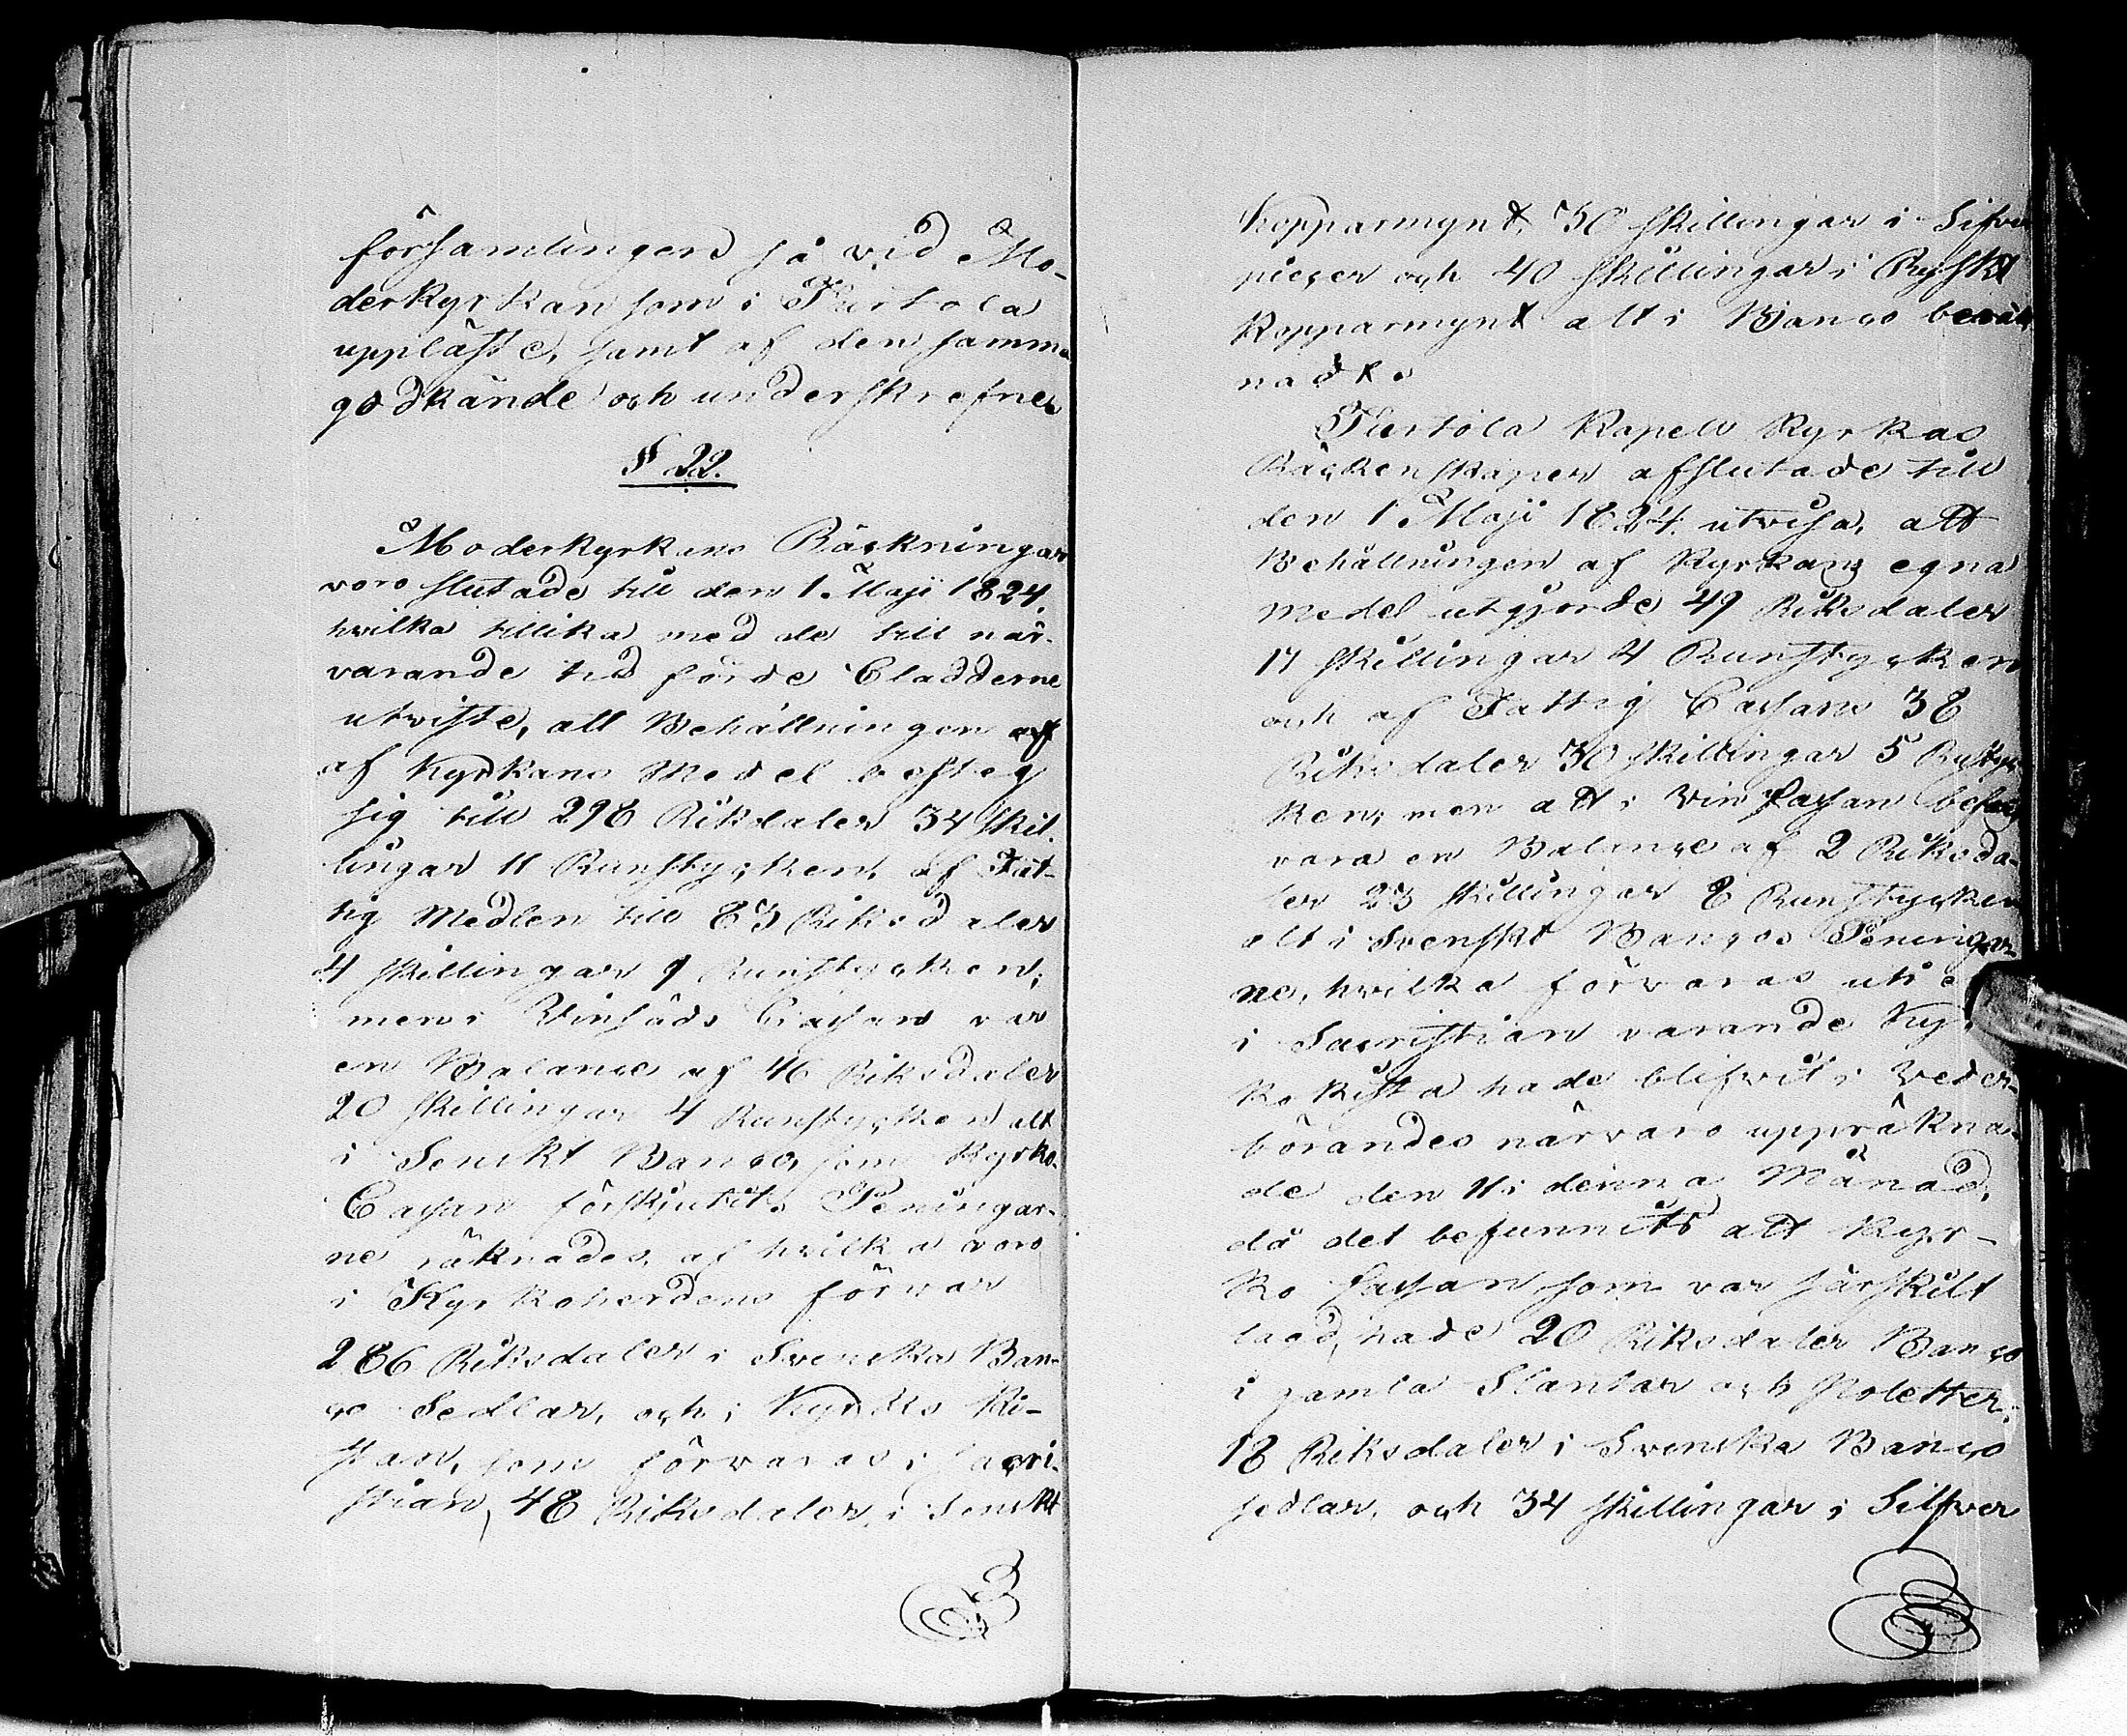 församlingen så vid Mo-
derkyrkan som i Turtola
uppläste, samt af den samma
godkände och underskrefne
§ 22.
Moderkyrkans Räkningar
voro slutade till den 1. Maji 1824,
hvilka tillika med de till när-
varande tid förde Cladderne
utviste, att Behållningen
af Kyrkans Medel besteg
sig till 298 Riksdaler 34 Skil-
lingar 11 Runstycken, af Fat-
tig Medlen till 83 Riksdaler
4 Skillingar 9 Runstycken;
men i Vinsäds Cassan var
en Balance af 46 Riksdaler
20 Skillingar 4 Runstycken allt
i Svenskt Banco, som Kyrko-
Cassan förskjutit. Peningar-
ne räknades, af hvilka voro
i Kyrkoherdens förvar
286 Riksdaler i Svenska Ban-
co Sedlar, och i Kyrkio Ki-
stan, som förvaras i Sacri-
stian, 48 Riksdaler, i Senskt
Kopparmynt, 30 Skillingar i Silfver
piecer och 40 Skillingar i Ryskt
Kopparmynt alt i Banco beräk
nadt.
Turtola Kapell Kyrkas
Räckenskaper afslutade till
den 1 Maji 1824. utvisa, att
Behållningen af Kyrkans egna
medel utgjorde 49 Riksdaler
17 Skillingar 4 Runstycken
och af Fattig Cassans 38
Riksdaler 30 Skillingar 5 Rystyc
ken; men att i Vin Cassan befans
vara en Balance af 2 Riksda-
ler 23 Skillingar 8 Runstycken
alt i Svenskt Banco. Peningar-
ne, hvilka förvaras uti e
i Sacristian varande Kyr
ko Kista hade blifvit i Veder-
börandes närvaro uppräkna-
de den 11 i denna Månad,
då det befunnits att Kyr-
ko Cassan som var särskilt
lagd, hade 20 Riksdaler Banco
i gamla Slantar och Poletter,
18 Riksdaler i Svenska Banco
sedlar, och 34 Skillingar i Silfver